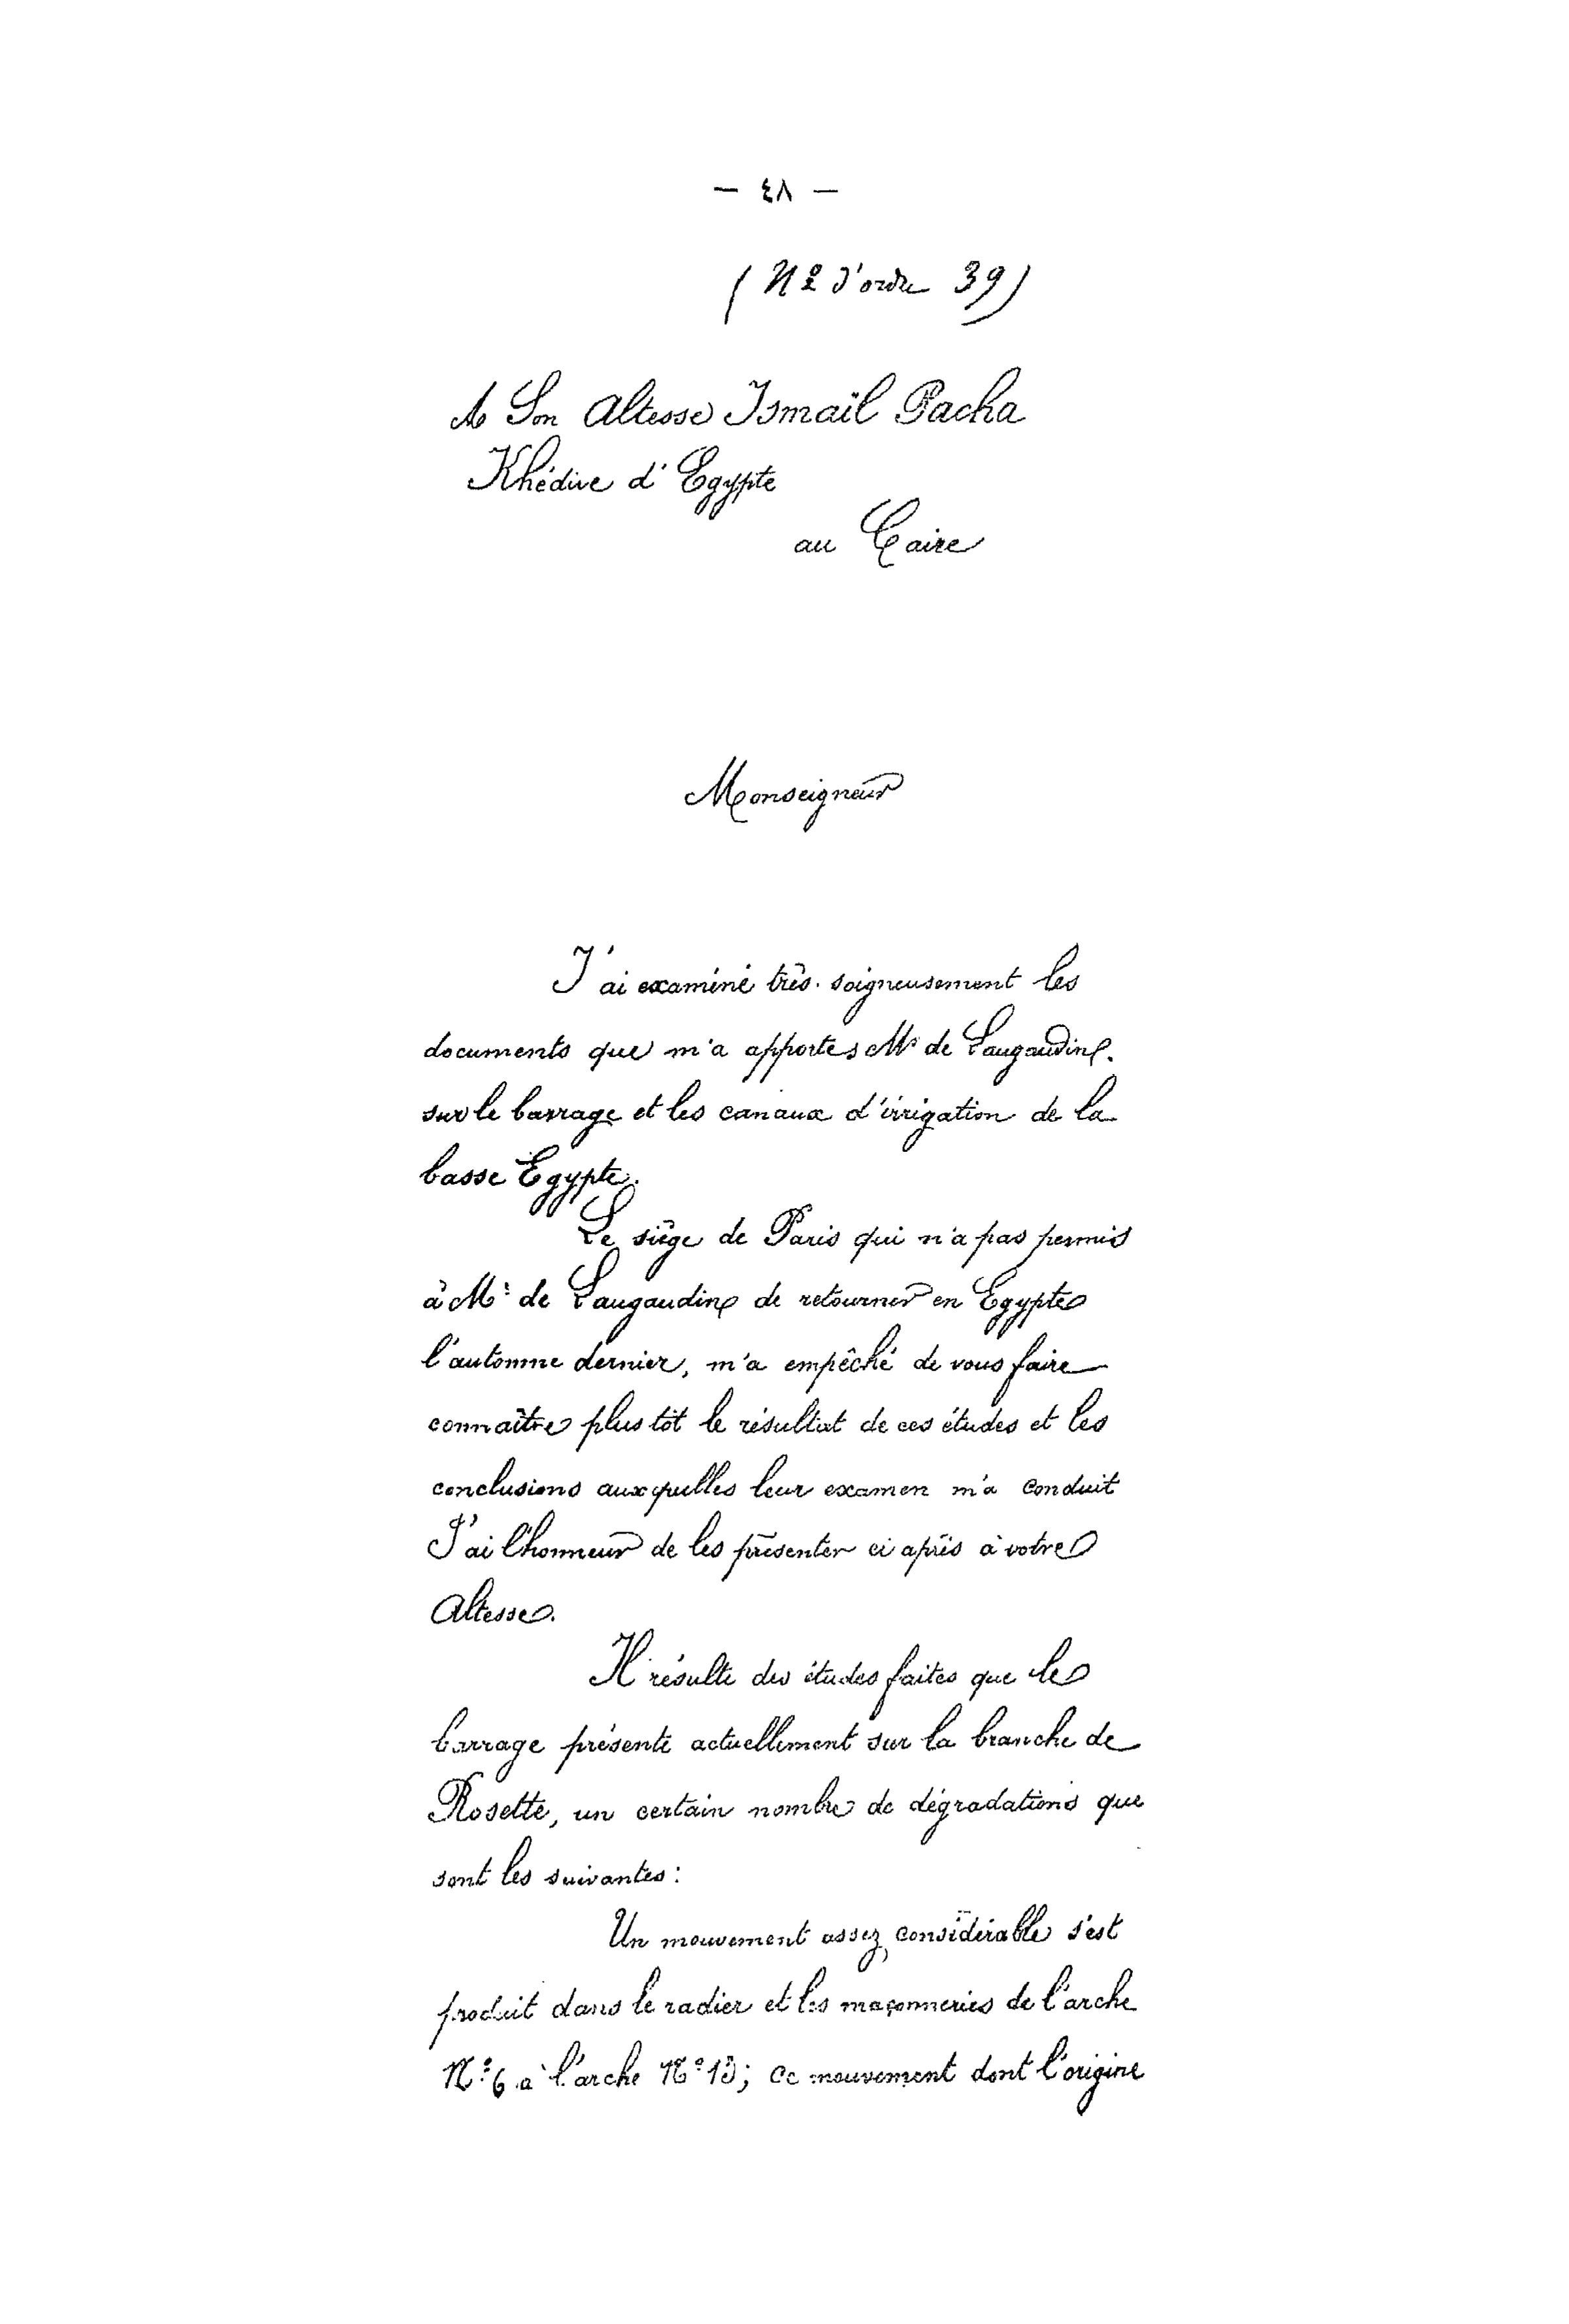 — ٤٨ —
(Nº d'ordre 39)
A Son Altesse Ismaïl Pacha
Khédive d'Egypte
au Caire
Monseigneur
J'ai examiné très-soigneusement les
documents que m'a apportés Mr de Laugaudin.
sur le barrage et les canaux d'irrigation de la
basse Egypte.
Le siège de Paris qui n'a pas permis
à Mr de Laugaudin de retourner en Egypte
l'automne dernier, m'a empêché de vous faire
connaître plus tôt le résultat de ces études et les
conclusions auxquelles leur examen m'a conduit
J'ai l'honneur de les présenter ci après à votre
Altesse.
Il résulte des études faites que le
barrage présente actuellement sur la branche de
Rosette, un certain nombre de dégradations que
sont les suivantes :
Un mouvement assez considérable s'est
produit dans le radier et les maçonneries de l'arche
Nº 6 à l'arche Nº ; ce mouvement dont l'origine